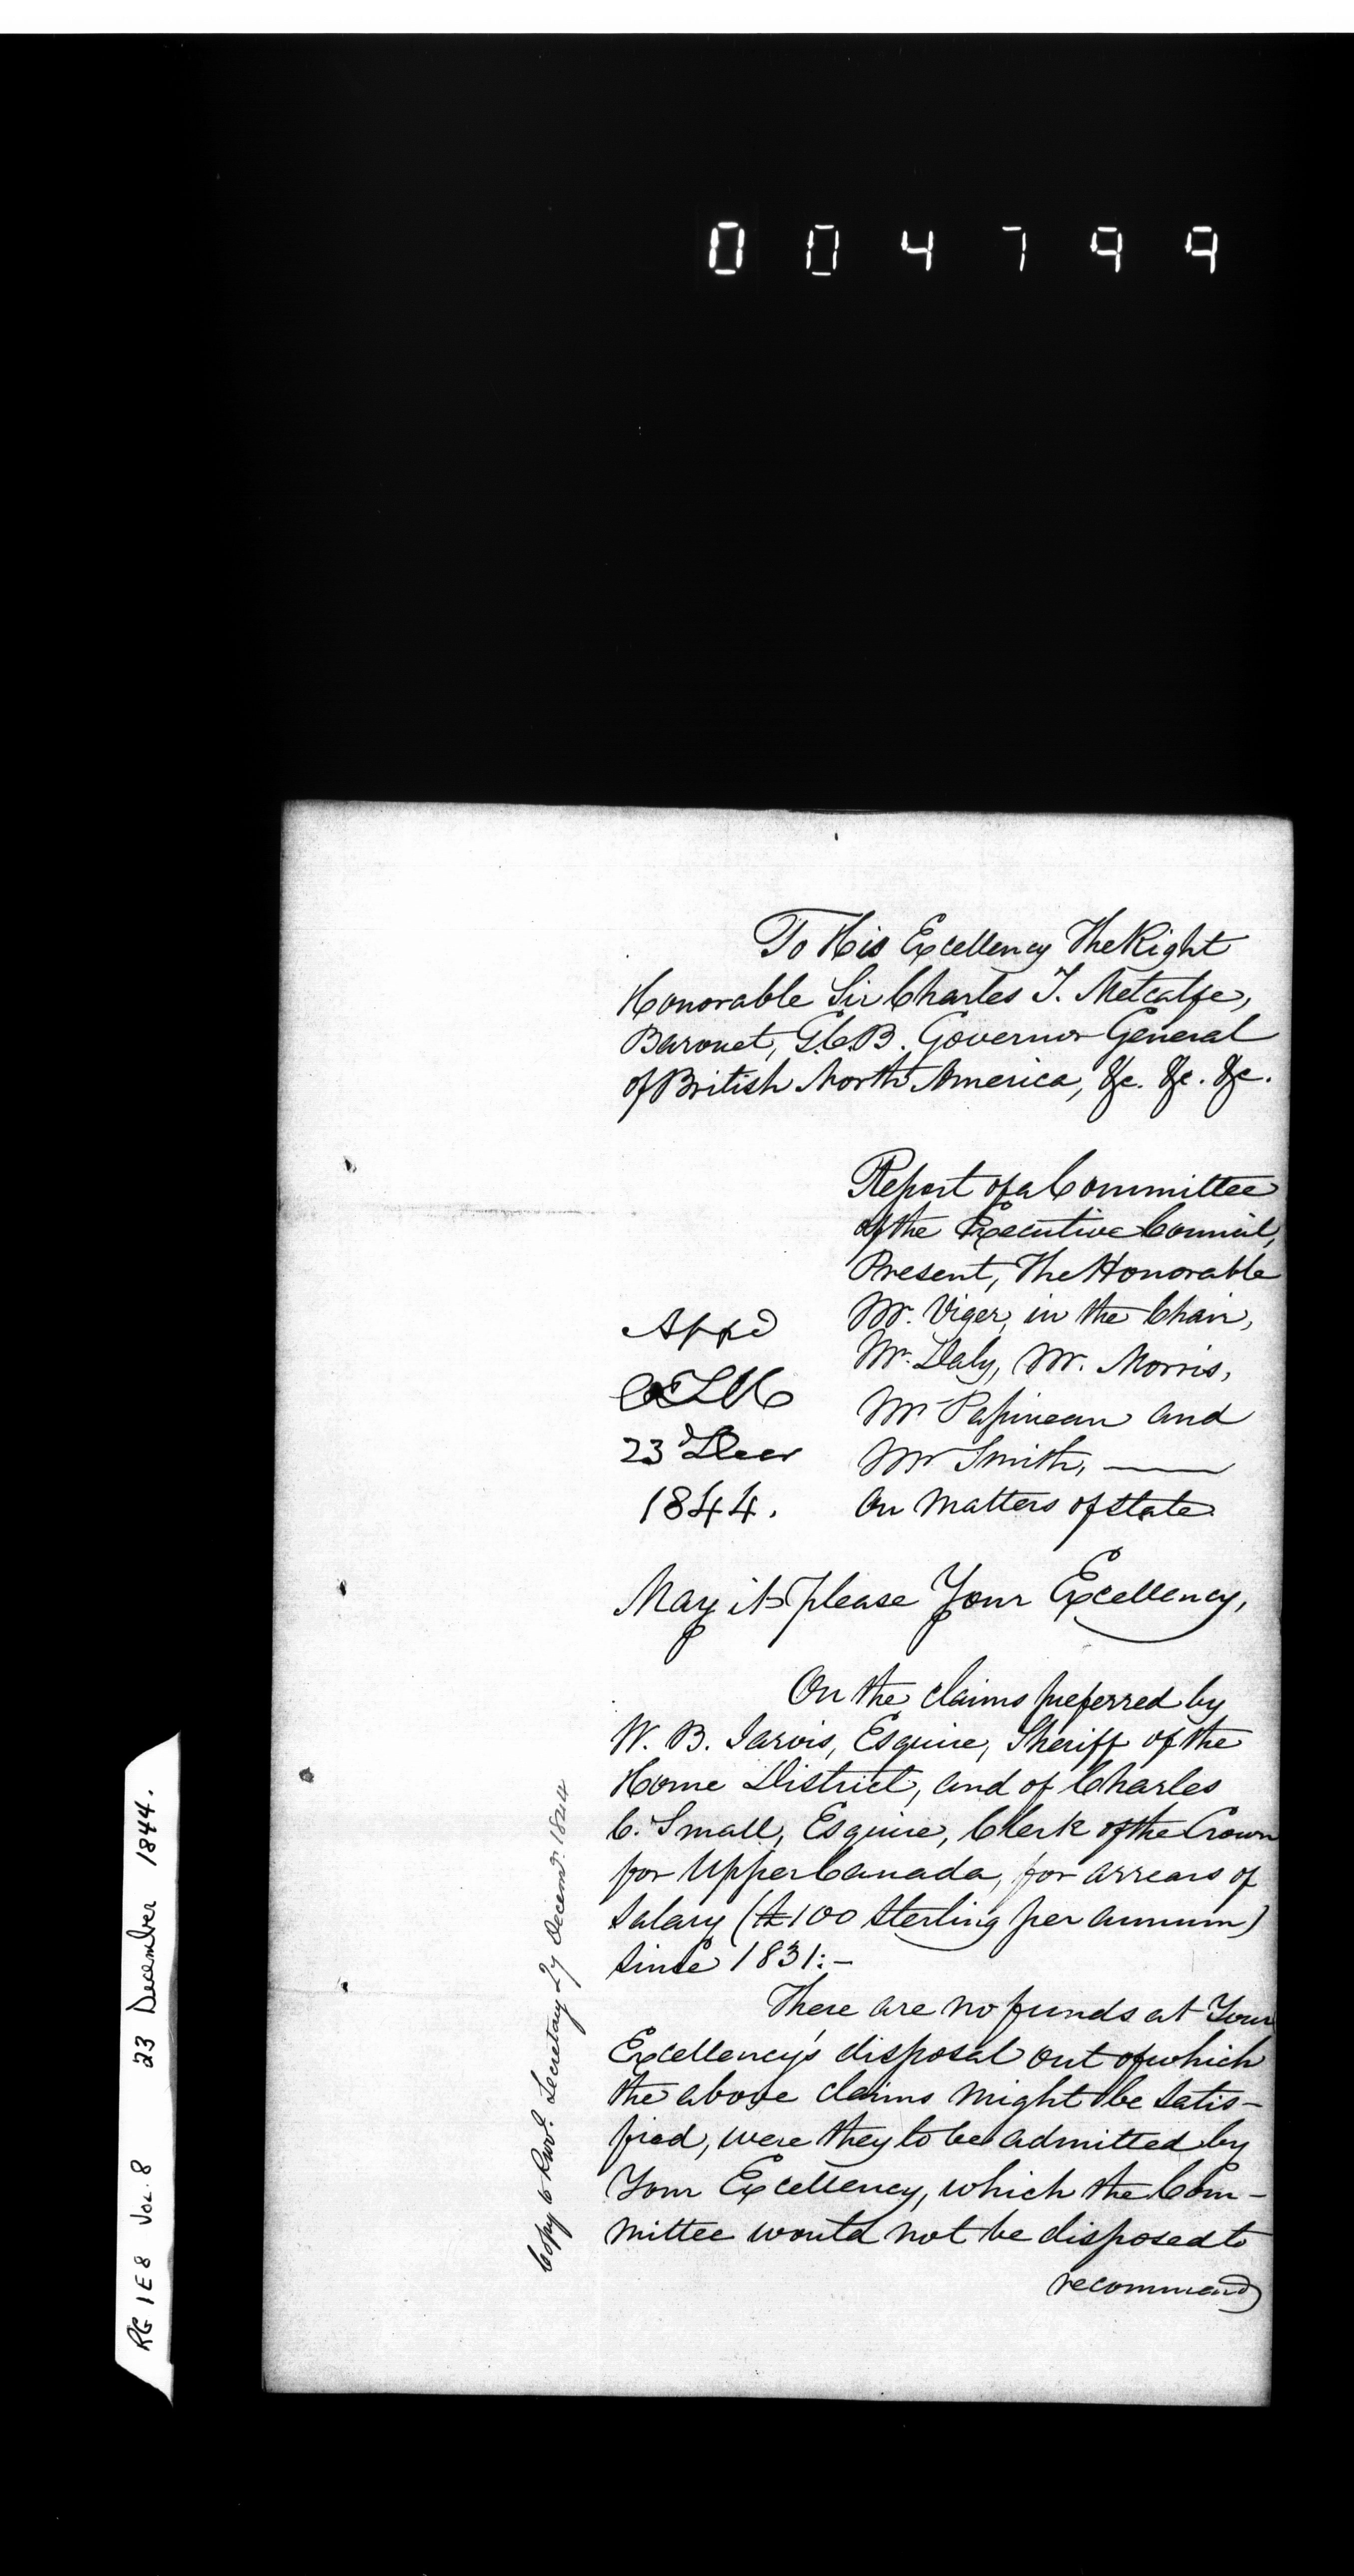 004799
To His Excellency The Right
Honorable Sir Charles T. Metcalfe,
Baronet, G.C.B. Governor General
of British North America, &c. &c. &c.
Report of a Committee
of the Executive Council,
Present, The Honorable
Mr. Viger, in the Chair,
Mr. Daly, Mr. Morris,
Mr Papineau and
Mr Smith,
On Matters of State
Appd
23d Decr
1844.
May it please Your Excellency,
On the claims preferred by
W. B. Jarvis, Esquire, Sheriff of the
Home District, and of Charles
C. Small, Esquire, Clerk of the Crown
for Upper Canada, for arrears of
Salary (£100 Sterling per annum)
since 1831:-
There are no funds at Your
Excellency's disposal out of which
the above claims might be satis-
fied, were they to be admitted by
Your Excellency, which the Com-
mittee would not be disposed to
recommend
Copy to Provl. Secretary 27 Decemr. 1844
RG 1 E 8 Vol. 8 23 December 1844.